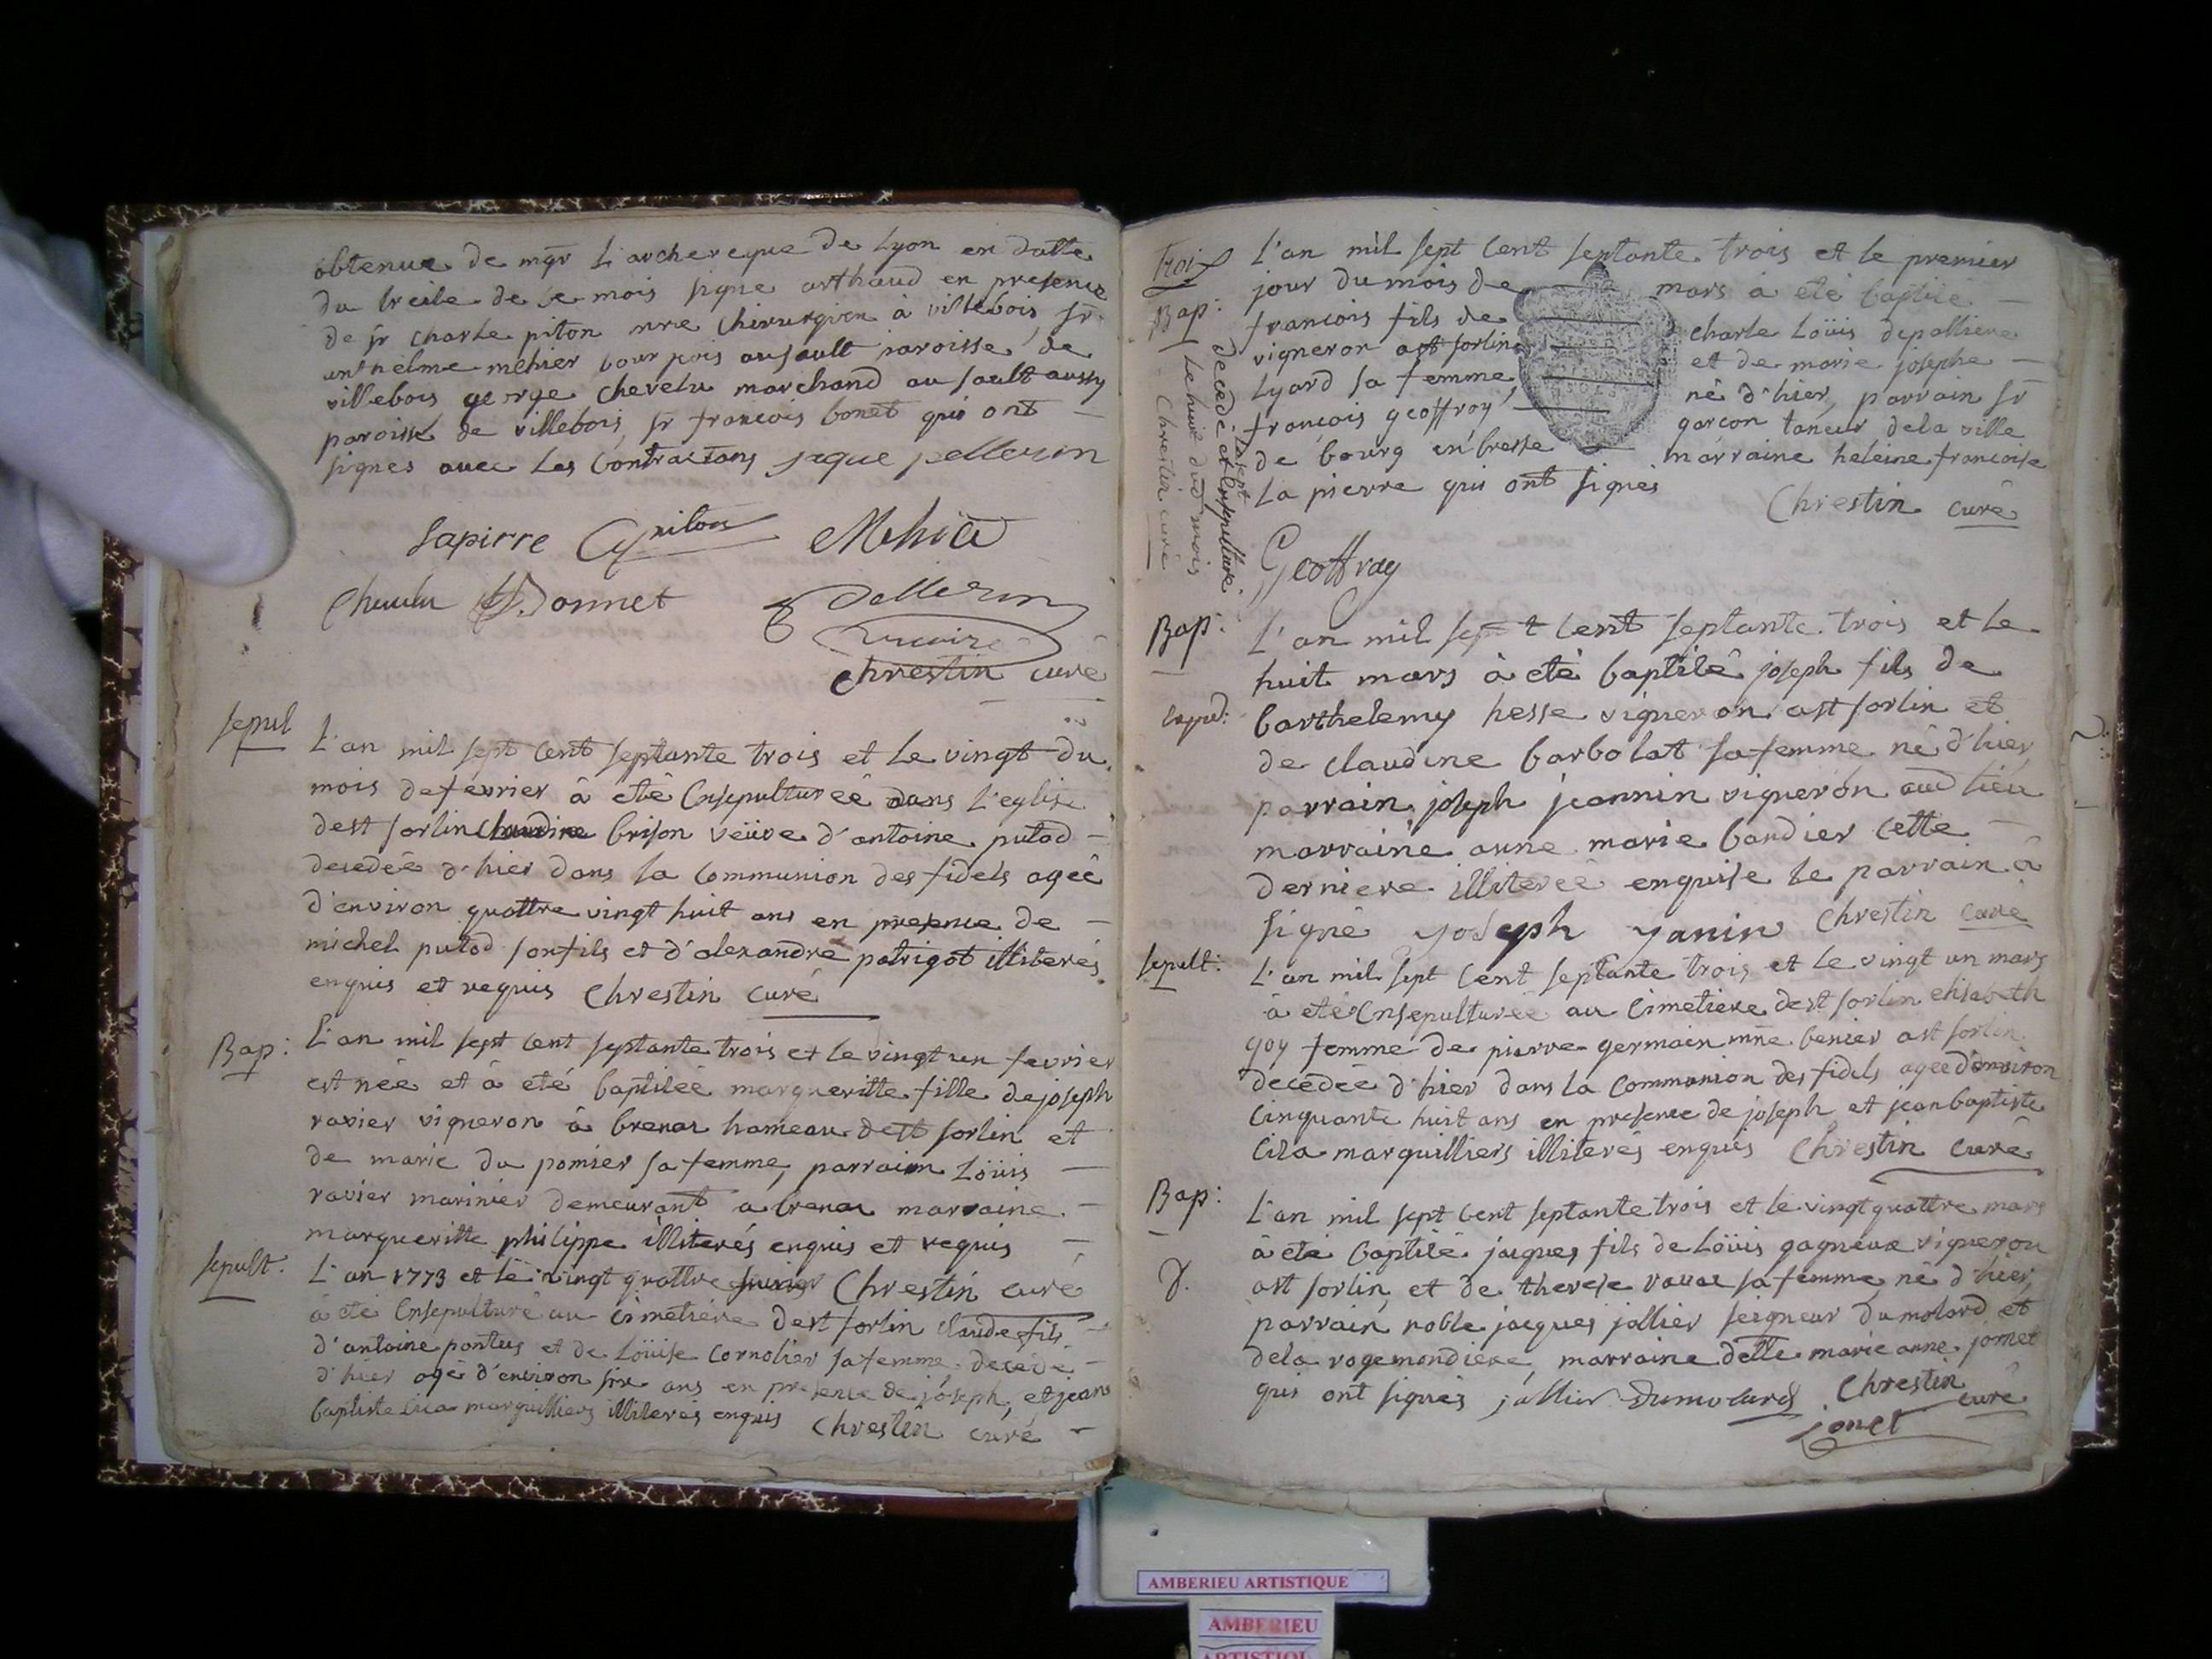 obtenue de mgr L'archeveque de Lyon en datte
du treile de ce mois signe arthaud en presence
de sr charle piton mre chirurgien à villebois, sr
anthelme méhier bourgois ausault paroisse de
villebois george chevelu marchand au sault aussy
paroisse de villebois, sr francois bonet qui ont
signes avec les contractans jaque pellerin
Lapirre C piton Mehier
Chevelu Bonnet Pellerin
chrestin curé
sepul
L'an mil sept cent septante trois et le vingt du
mois defévrier à eté Ensepulturée dans l'eglise
dest sorlin Claudine brison veüve d'antoine putod
decedée d'hier dans la Communion des fidels agée
d'environ quattre vingt huit ans en presence de
michel putod son fils et d'alexandre patrigot illiterés
enquis et requis Chrestin curé
Bap:
L'an mil sept cent septante trois et le vingt un fevrier
est née et à eté baptilée margueritte fille dejoseph
ravier vigneron à brenar hameau dest sorlin et
de marie du pomier sa femme, parrain Loüis
ravier marinier demeurant a brenar marraine
margueritte philippe illiterés enquis et requis
Chrestin curé
sepult:
L'an 1773 et le vingt quattre fevrier
à eté Ensepulturé au Cimetiére dest sorlin claude fils
d'antoine pontus et de Loüise Cornolier sa femme decedé
d'hier agé d'environ six ans en presence de joseph, et jean
baptiste Cila marguilliers illiterés enquis Chrestin curé
Trois
L'an mil sept Cent septante trois et le premier
jour du mois de mars à eté baptilé
Bap:
francois fils de charle Loüis depalliere
vigneron a st sorlin et de marie josephe
Lyard sa femme, né d'hier, parrain sr
francois geoffroy garcon taneur de la ville
de bourg en bresse marraine heleine francoise
La pierre qui ont signés
Chrestin curé
Geoffray
decedé et Ensepulturé
Le sept
Le huit dud mois
Chrestin curé
Bap:
L'an mil sept Cent septante trois et le
huit mars à eté baptilé joseph fils de
barthelemy hesse vigneron ast sorlin et
de claudine barbolat sa femme né d'hier
parrain joseph jeannin vigneron aud lieu
marraine anne marie bandier cette
derniere illiterée enquise le parrain à
signé yoseph yanin Chrestin curé
sepult:
L'an mil sept Cent septante trois et le vingt un mars
à eté Ensepulturée au Cimetiere dest sorlin elisabeth
goy femme de pierre germain mne benier ast sorlin
decedée d'hier dans la Communion des fidels agée d'environ
Cinquante huit ans en presence de joseph et jean baptiste
Cila marguilliers illiterés enquis Chrestin curé
Bap:
L'an mil sept Cent septante trois et le vingt quattre mars
à eté baptilé jacques fils de Loüis gagneux vigneron
ast sorlin, et de therese ravar sa femme né d'hier,
parrain noble jacques jallier seigneur du molard et
dela rogemondiere, marraine delle marie anne jonet
qui ont signés jallier Dumolard Chrestin
curé
jonet
AMBERIEU ARTISTIQUE
AMBERIEU
ARTISTIQUE